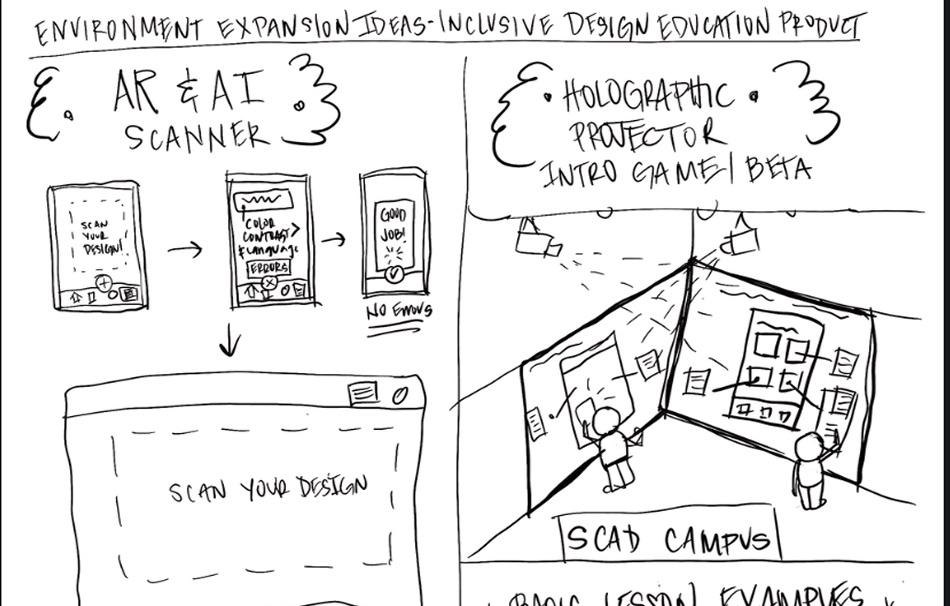 ENVIRONMENT EXPANSION IDEAS-INCLUSIVE DESIGN EDUCATION PRODUCT
AR & AI
SCANNER
SCAN
YOUR
DESIGN!
COLOR
CONTRAST
& Language
ERRORS
GOOD
JOB!
NO Errors
SCAN YOUR DESIGN
HOLOGRAPHIC
PROJECTOR
INTRO GAME/ BETA
SCAD CAMPUS
BASIC LESSON EXAMPLES